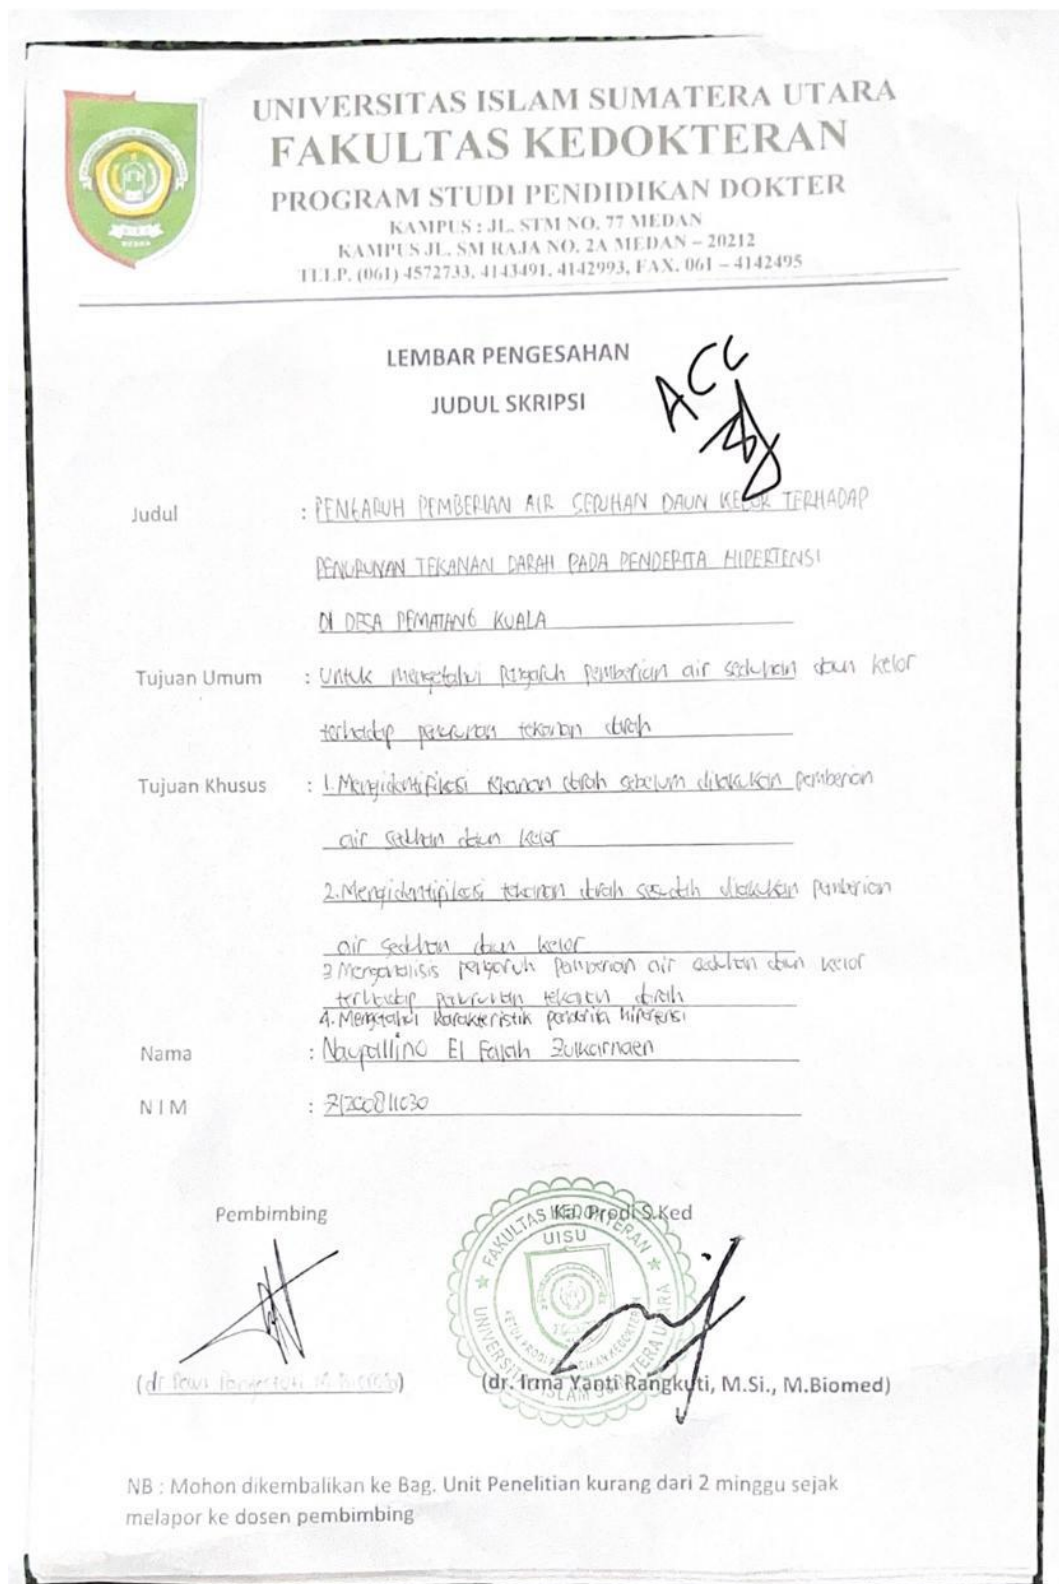 UNIVERSITAS ISLAM SUMATERA UTARA
FAKULTAS KEDOKTERAN
PROGRAM STUDI PENDIDIKAN DOKTER
KAMPUS : JL. STM NO. 77 MEDAN
KAMPUS JL. SM RAJA NO. 2A MEDAN – 20212
TELP. (061) 4572733, 4143491, 4142993, FAX. 061 – 4142495
LEMBAR PENGESAHAN
JUDUL SKRIPSI
ACC
Judul : PENGARUH PEMBERIAN AIR SEDUHAN DAUN KELOR TERHADAP
PENURUNAN TEKANAN DARAH PADA PENDERITA HIPERTENSI
DI DESA PEMATANG KUALA
Tujuan Umum : Untuk mengetahui pengaruh pemberian air seduhan daun kelor
terhadap penurunan tekanan darah
Tujuan Khusus : 1. Mengidentifikasi tekanan darah sebelum dilakukan pemberian
air seduhan daun kelor
2. Mengidentifikasi tekanan darah sesudah dilakukan pemberian
air seduhan daun kelor
3 Menganalisis pengaruh pemberian air seduhan daun kelor
terhadap penurunan tekanan darah
4. Mengetahui karakteristik penderita hipertensi
Nama : Naupallino El Falah Zulkarnaen
NIM : 71200811030
Pembimbing
Ka. Prodi S.Ked
FAKULTAS KEDOKTERAN
UISU
UNIVERSITAS ISLAM SUMATERA UTARA
(dr.
(dr. Irma Yanti Rangkuti, M.Si., M.Biomed)
NB : Mohon dikembalikan ke Bag. Unit Penelitian kurang dari 2 minggu sejak
melapor ke dosen pembimbing